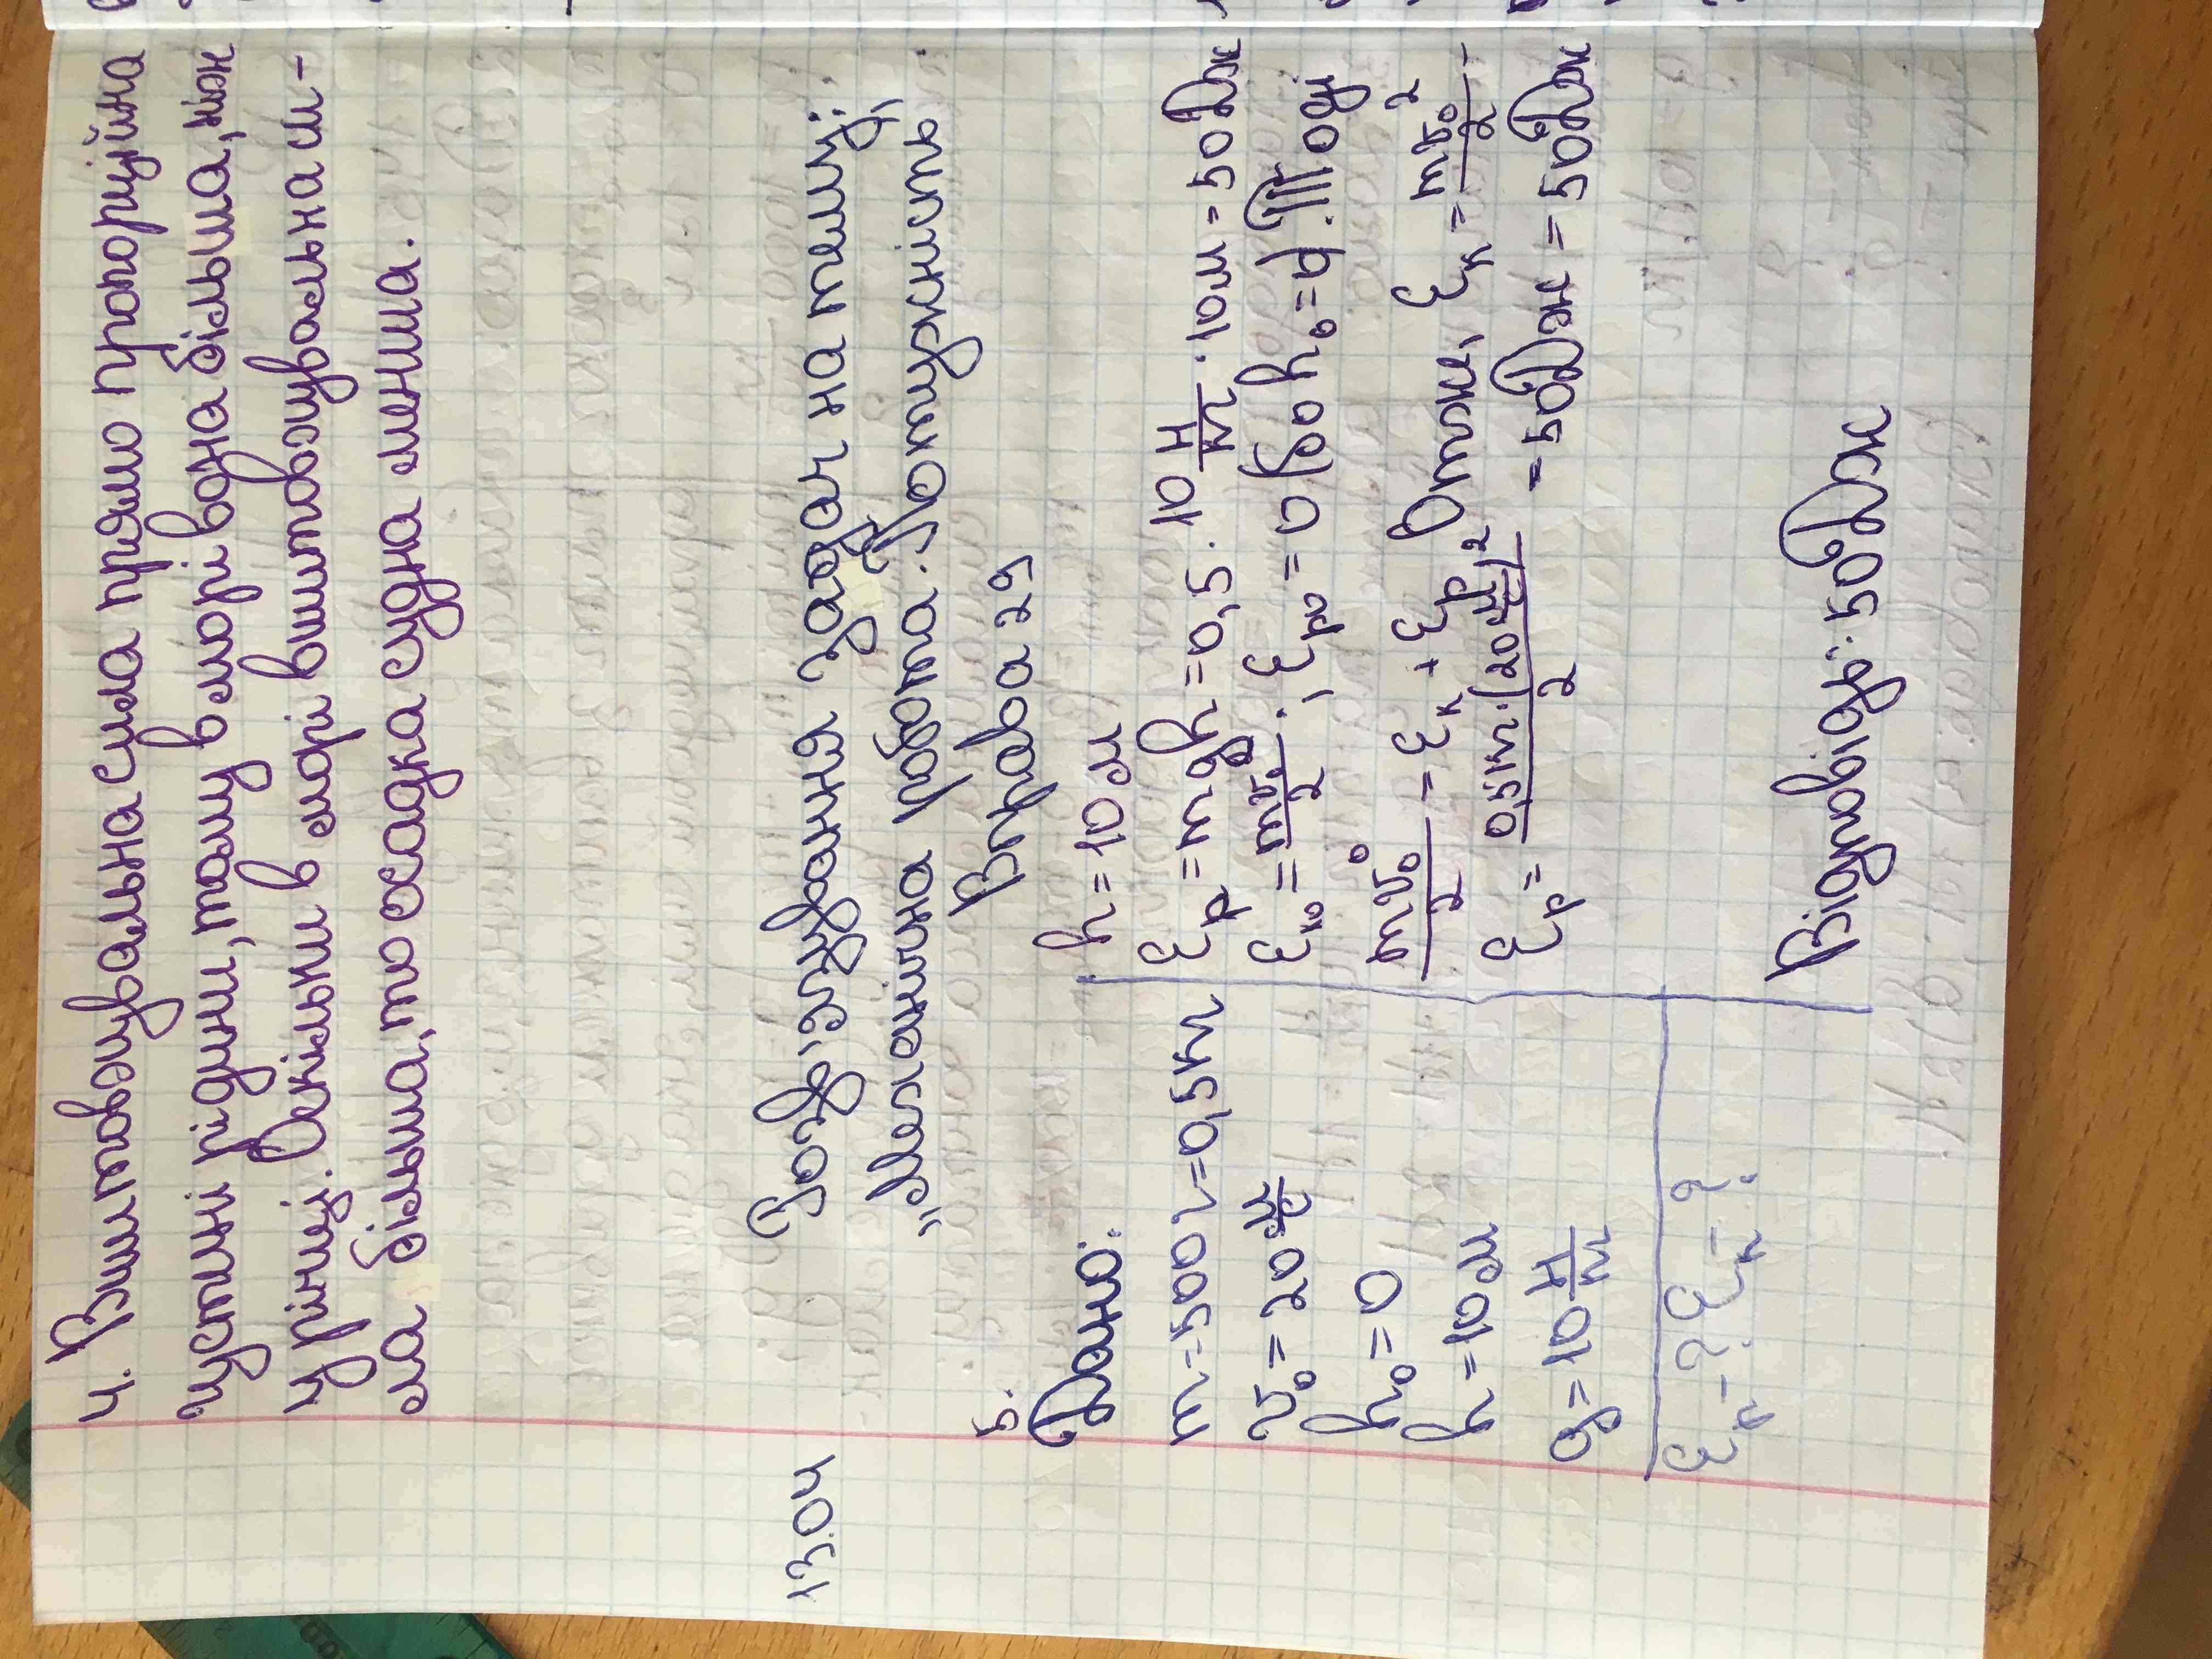 4. Виштовхувальна сила прямо пропорційна
густині рідини, тому в морі вона більша, ніж
у річці. Оскільки в морі виштовхувальна си-
ла більша, то осадка судна менша.
13.04 Розв'язування задач на тему:
„Механічна робота. Потужність
Вправа 29
5.
Дано:
m = 500 г = 0,5 кг
v₀ = 20 м/с
h₀ = 0
h = 10 м
g = 10 Н/кг
Eп - ? Eк - ?
h = 10 м
Ep = mgh = 0,5 · 10 Н/кг · 10 м = 50 Дж
Eк₀ = mv₀/2 ; Ep₀ = 0 (бо h₀ = 0). Тоді
mv₀/2 = Eк + Ep Отже, Eк = mv₀²/2 -
Ep = 0,5 кг · (20 м/с)²/2 - 50 Дж = 50 Дж
Відповідь: 50 Дж